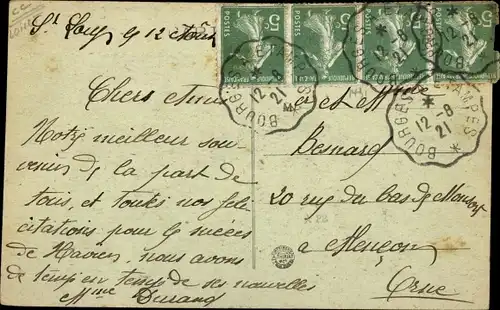 St Lay, 9 12 Août
Chers Amis
Notre meilleur sou-
venir de la part de
tous, et toutes nos féli
citations pour le succès
de Xavier. nous avons
de temps en temps de ses nouvelles
Mme Durand
et Mme
Besnard
20 rue du bas de Montsort
a Alençon
Orne
POSTES 5c
POSTES 5c
POSTES 5c
POSTES 5c
BOURGES
12 -8
21
BOURGES A ETAMPES
12 -8
21